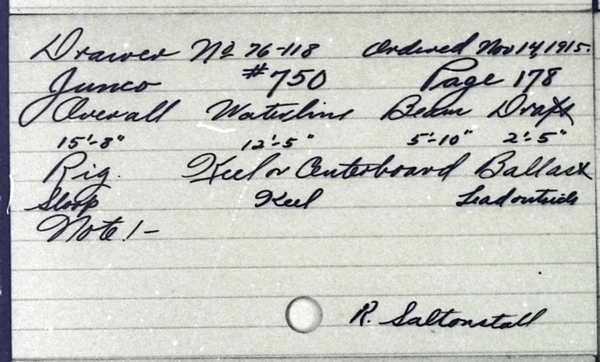 Drawer No 76-118 Ordered Nov 14, 1915.
Junco #750 Page 178
Overall Waterline Beam Draft
15'-8" 12'-5" 5'-10" 2'-5"
Rig. Keel or Centerboard Ballast
Sloop Keel Lead outside
Note!-
R. Saltonstall